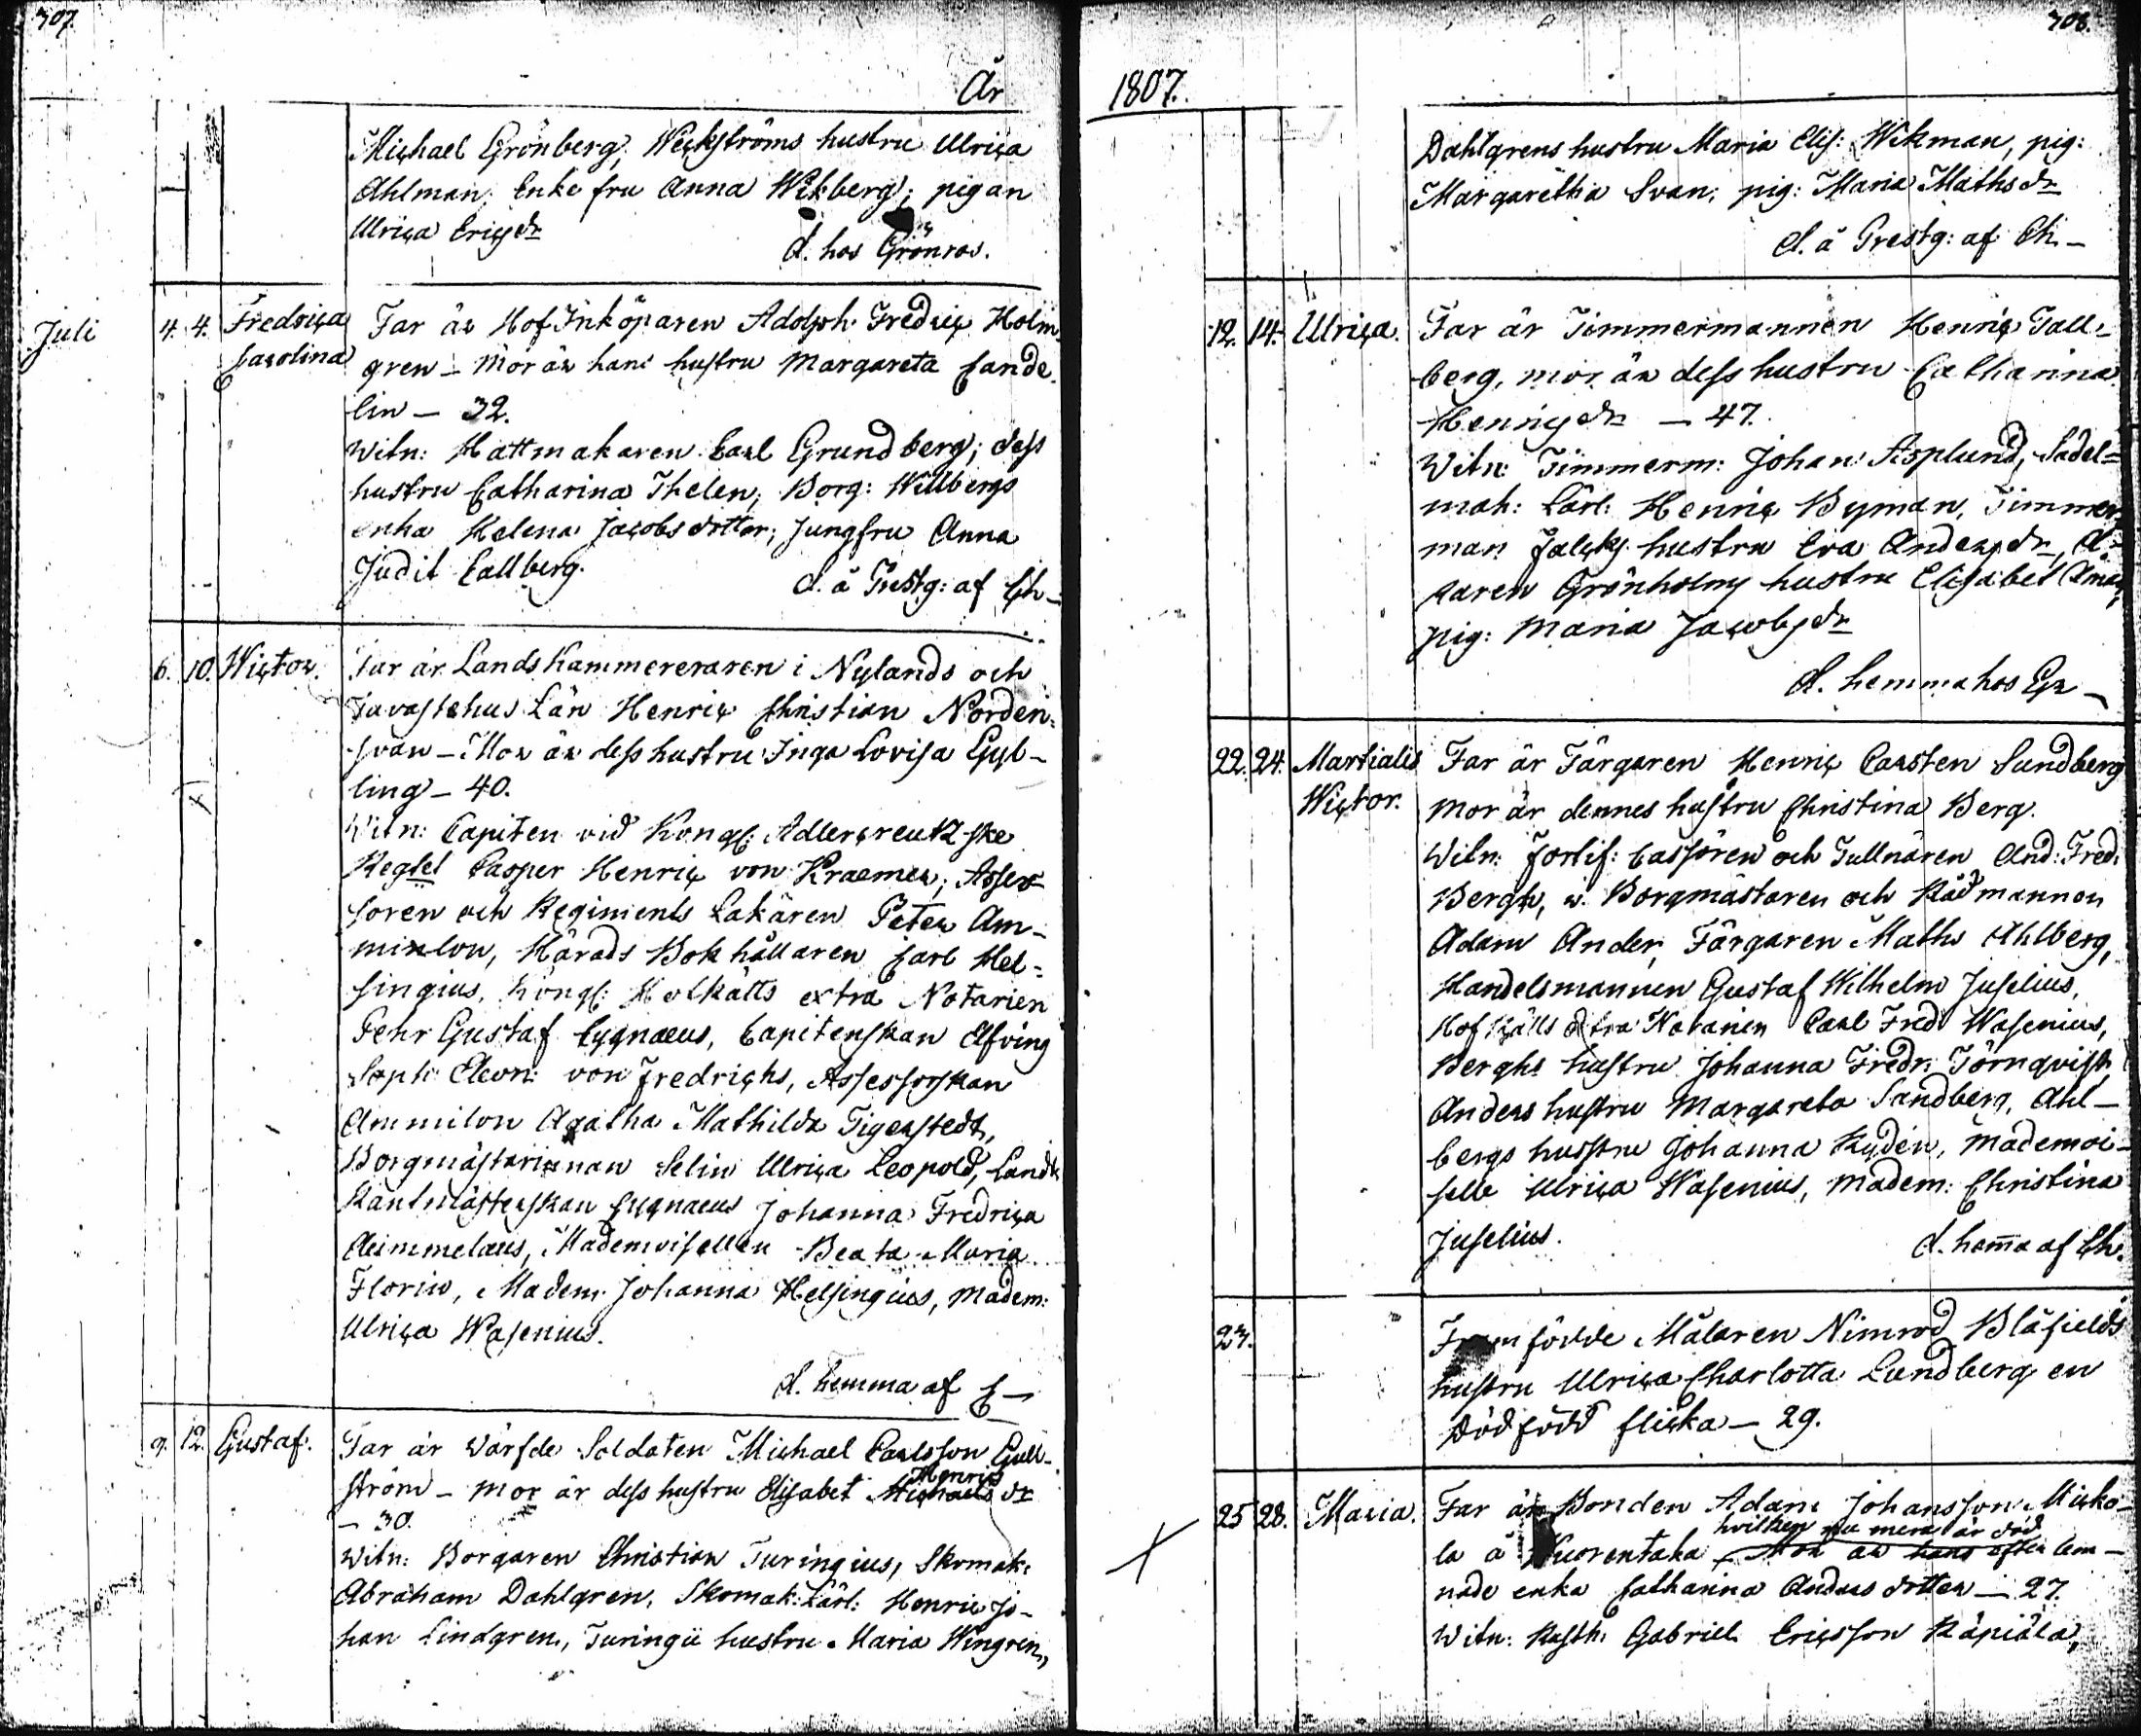 307.
År
Michael Grönberg, Weckströms hustru Ulrica
Ahlman, Enke fru Anna Wikberg; pigan
Ulrica Ericsdr
d. hos Grönros.
Juli
4. 4. Fredrica Carolina
Far är Hof Inköparen Adolph Fredric Holm-
gren – Mor är hans hustru Margareta Cande-
lin – 32.
Witn: Hattmakaren Carl Grundberg; dess
hustru Catharina Thelen; Borg: Willbergs
enka Helena Jacobsdotter; Jungfru Anna
Judit Callberg.
d. å Prestg: af Ch–
6. 10. Wictor.
Far är Lands Kammereraren i Nylands och
Tavastehus Län Henric Christian Norden-
svan – Mor är dess hustru Inga Lovisa Gyl-
ling – 40.
Witn: Capiten vid Kongl: Adlercreutzske
Regtet Casper Henric von Kraemer; Asses-
soren och Regiments Läkaren Peter Am-
minlou, Härads Bokhållaren Carl Hel-
singius, Kongl: Hofrätts extra Notarien
Pehr Gustaf Cygnaeus, Capitenskan Elfving
Soph: Eleon: von Fredrichs, Assessorskan
Ammilon Agatha Mathilda Tigerstedt,
Borgmästarinnan Selin Ulrica Leopold, Landt
Räntmästerskan Cygnaeus Johanna Fredrica
Aimmelaeus, Mademoisellen Beata Maria
Florin, Madem: Johanna Helsingius, Madem:
Ulrica Wasenius.
d. hemma af C–
9. 12. Gustaf.
Far är Värfde Soldaten Michael Carlsson Gull-
ström – Mor är dess hustru Elisabet Michaels Henrics dr
– 30.
Witn: Borgaren Christian Turingius, Skomak:
Abraham Dahlgren, Skomak: Lärl: Henric Jo-
han Lindgren, Turingii hustru Maria Wingren,
308.
1807.
Dahlgrens hustru Maria Elis: Wikman, pig:
Margaretha Svan, pig: Maria Mathsdr
d. å Prestg: af Ch–
12. 14. Ulrica.
Far är Timmermannen Henric Tall-
berg, mor är dess hustru Catharina
Henricsdr – 47.
Witn: Timmerm: Johan Asplund, Sadel-
mak: Lärl: Henric Byman, Timmer
man hustru Eva Andersdr,
Grönholms hustru Elisabet
pig: Maria Jacobsdr
d. hemma hos Gr–
22. 24. Martialis Wictor.
Far är Färgaren Henric Carsten Sundberg
mor är dennes hustru Christina Berg.
Witn: Fortif: Cassören och Tullnären And: Fred:
Bergh, v. Borgmästaren och Rådmannen
Adam Ander, Färgaren Maths Ahlberg,
Handelsmannen Gustaf Wilhelm Juselius,
Hofrätts extra Notarien Carl Fred: Wasenius,
Berghs hustru Johanna Fredr: Törnqvist,
Anders hustru Margareta Sandberg, Ahl-
bergs husstru Johanna Rydén, Mademoi-
selle Ulrica Wasenius, Madem: Christina
Juselius.
d. hema af Ch.
23.
Framfödde Målaren Nimrod Blåfields
hustru Ulrica Charlotta Lundberg en
dödfödd flicka – 29.
25 28. Maria.
Far är Bonden Adam Johansson Micko-
hvilken nu mera är död
la å Kuorentaka – Mor är hans efterlem-
nade enka Catharina Andersdotter – 27.
Witn: Rusth: Gabriel Ericsson Käpiälä,